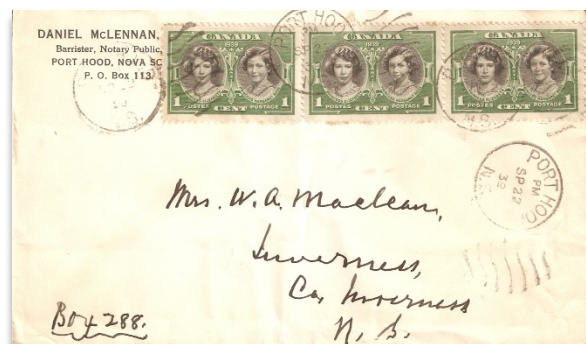 DANIEL McLENNAN,
Barrister, Notary Public,
PORT HOOD, NOVA SC
P. O. Box 113
CANADA
1939
1 POSTES POSTAGE 1
CENT
CANADA
1939
1 POSTES POSTAGE 1
CENT
CANADA
1 POSTES POSTAGE 1
CENT
PORT HOOD
N.S.
PORT HOO
PM
SP 22
39
N.S.
Mrs. W. A. Maclean,
Inverness,
Co. Inverness
N. S.
Box 288.